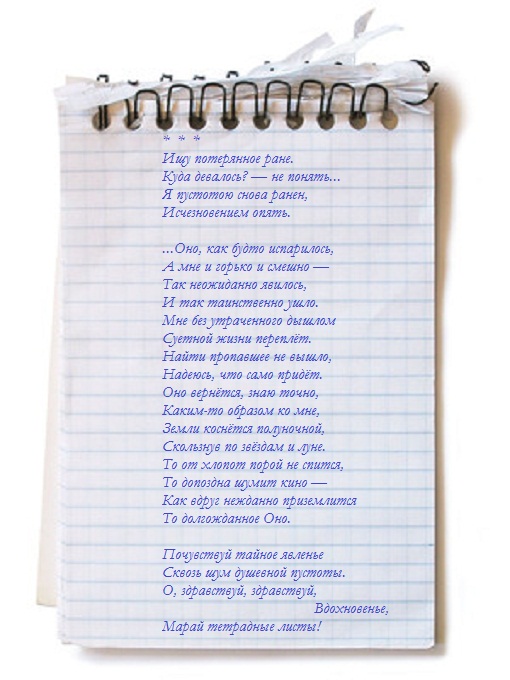 * * *
Ищу потерянное ране.
Куда девалось? — не понять...
Я пустотою снова ранен,
Исчезновением опять.
...Оно, как будто испарилось,
А мне и горько и смешно —
Так неожиданно явилось,
И так таинственно ушло.
Мне без утраченного дышлом
Суетной жизни переплёт.
Найти пропавшее не вышло,
Надеюсь, что само придёт.
Оно вернётся, знаю точно,
Каким-то образом ко мне,
Земли коснётся полуночной,
Скользнув по звёздам и луне.
То от хлопот порой не спится,
То допоздна шумит кино —
Как вдруг нежданно приземлится
То долгожданное Оно.
Почувствуй тайное явленье
Сквозь шум душевной пустоты.
О, здравствуй, здравствуй,
Вдохновенье,
Марай тетрадные листы!